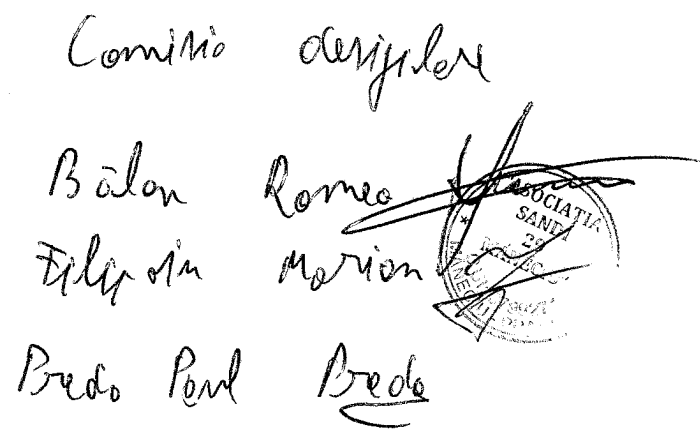 Comisia desigilare
Bălan Romeo
Filipoiu Marian
Breda Paul Breda
ASOCIATIA
SANDI